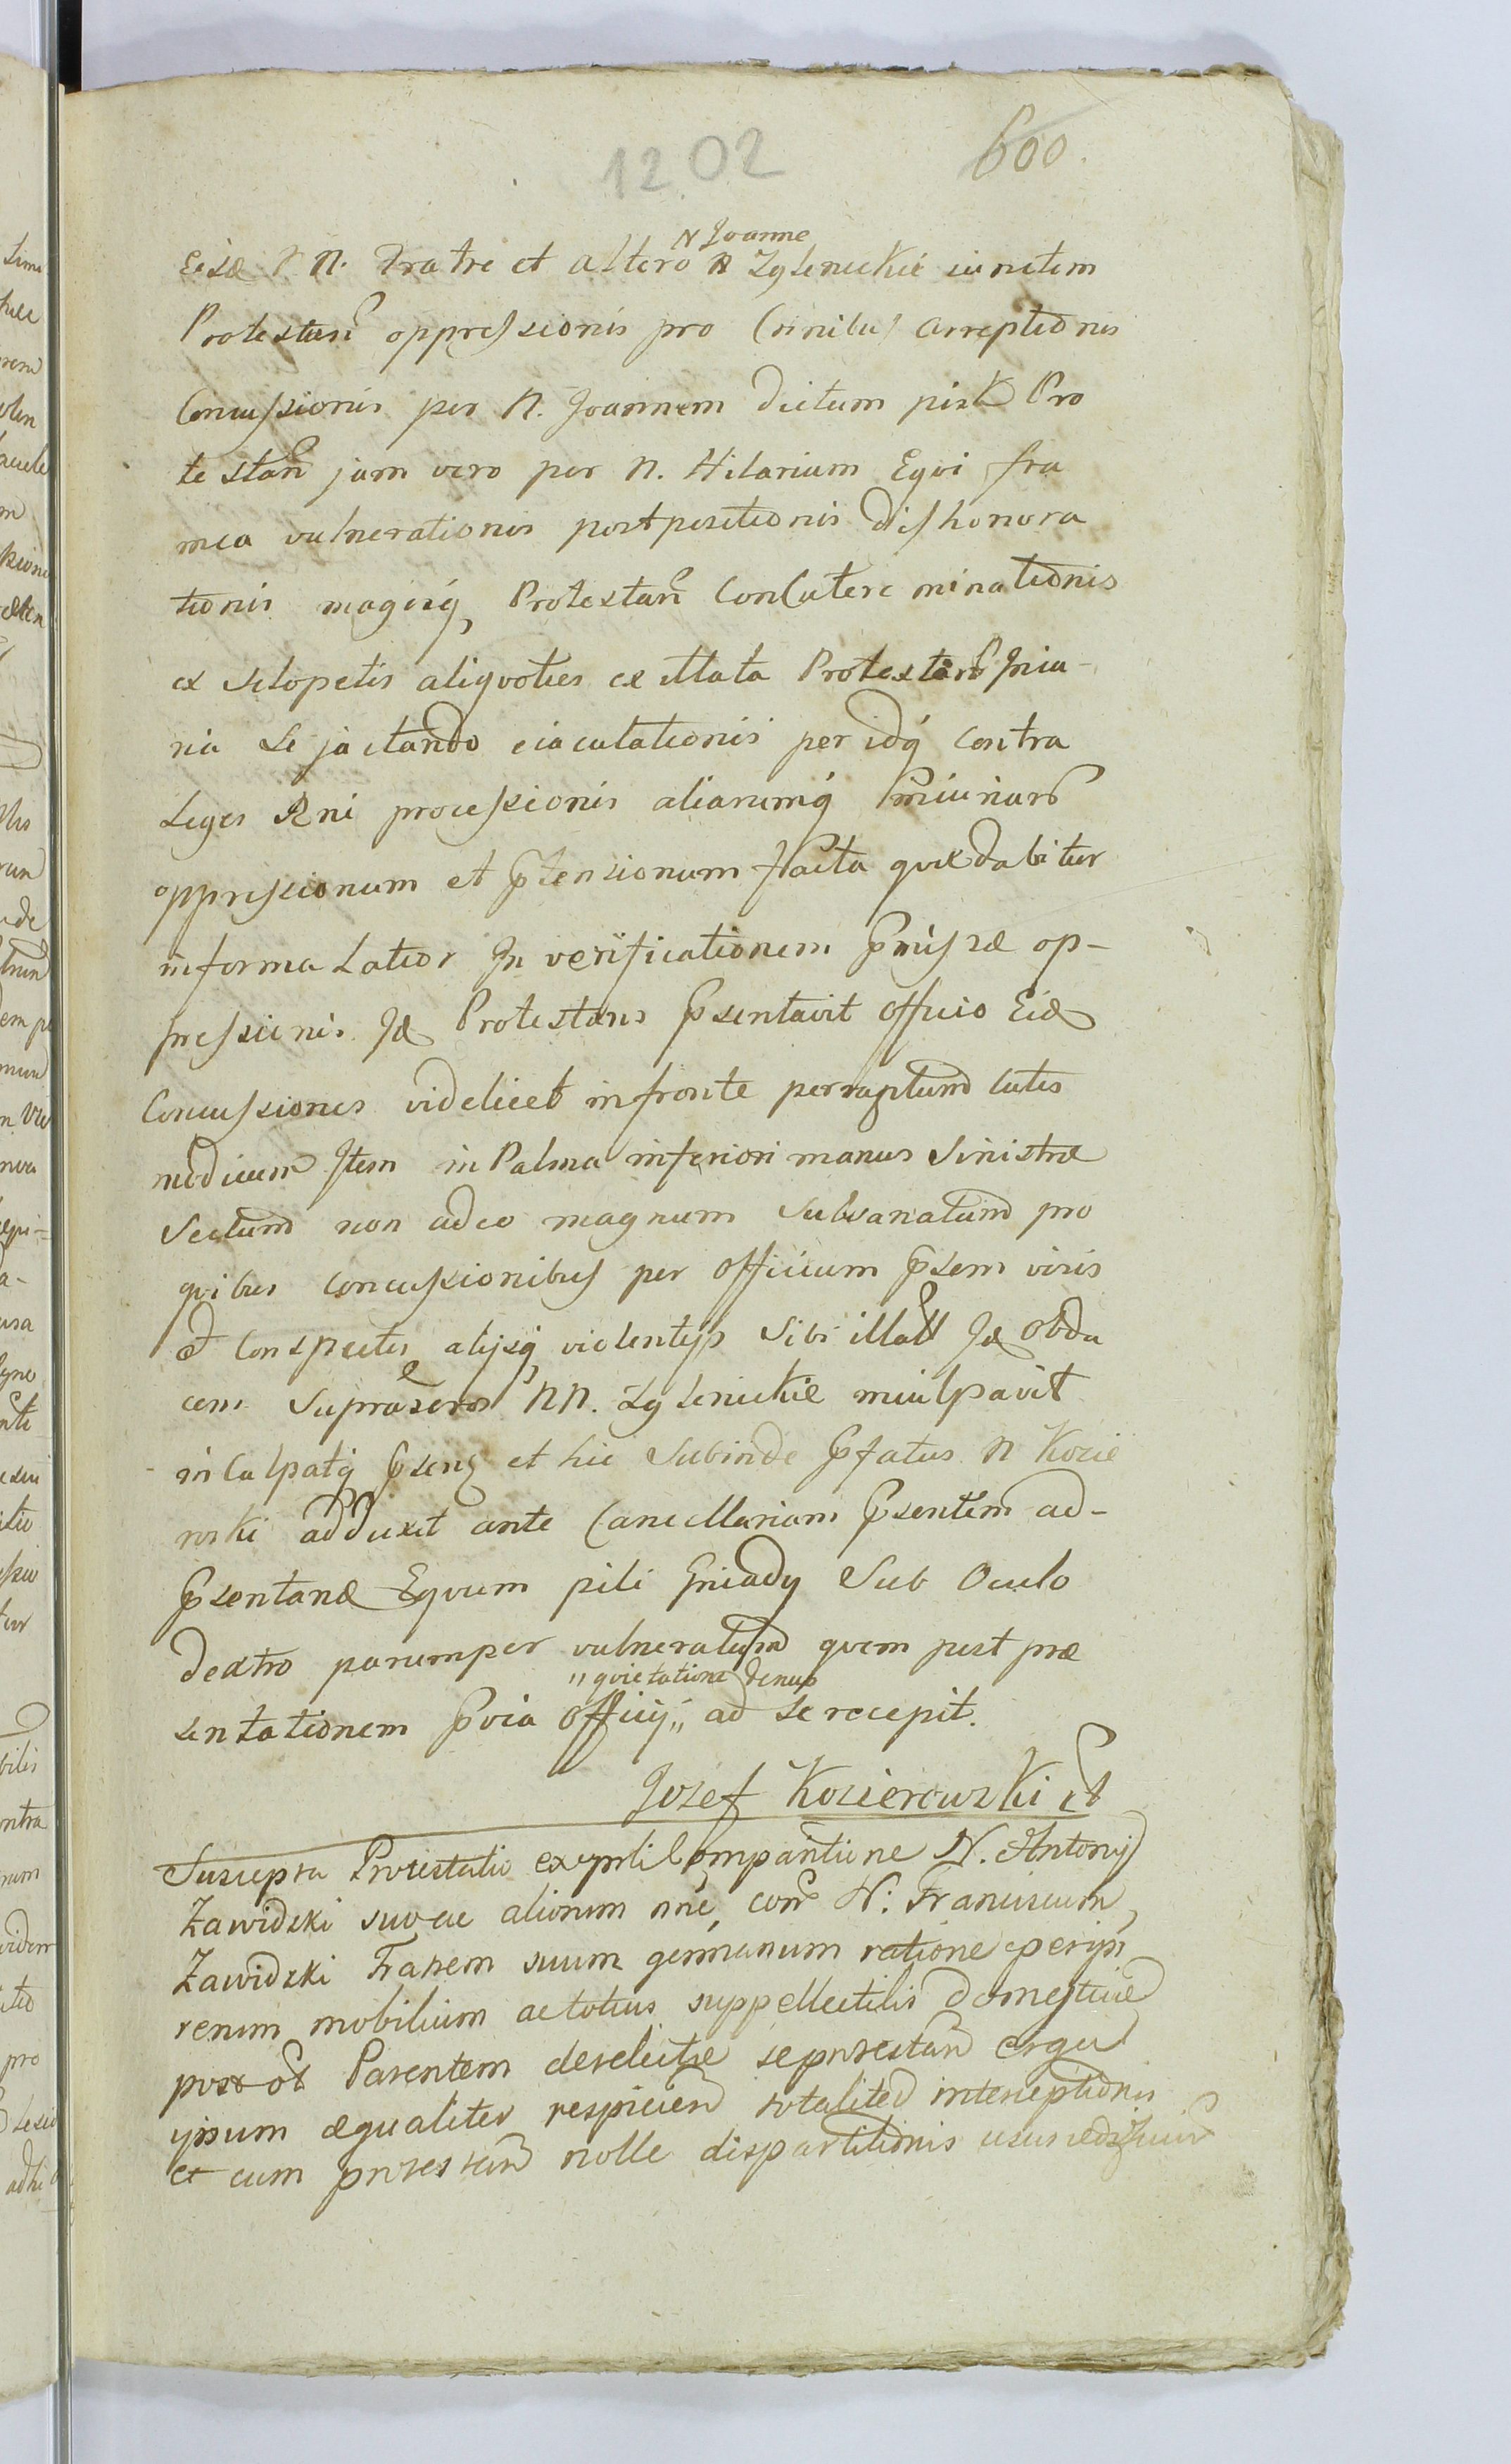 1202
600.
N Joanne
Eisd N N. Fratre et altero N Zglenickie iunctem
Protestan oppressionis pro Crinibus arreptionis
Concussionis per N. Joannem dictum Pro
testan jam vero per N. Hilarium Eqvi fra
mea vulnerationis postpositionis dishonora
tionis magisq Protestan Concutere minationis
ex sclopetis aliqvoties ex illata Protestan Iniu-
ria se jactando eiaculationis per idq contra
Leges Rni processionis aliarumq Iniuriar
oppressionum et ptensionum facta qvae dabitur
in forma Latior In verificationem pmissae op-
pressionis Id Protestans psentavit officio Eid
Concussiones videlicet in fronte perruptum cutis
modicum Item in Palma inferiori manus Sinistrae
Sectum non adeo magnum Subsanatum pro
qvibus concussionibus per officium psem visis
et Conspectis alijsq violentijs Sibi illatis Id Obdu
cens Suprascros NN. Zglenickie inculpavit
inculpatq psenq et hic Subinde pfatus N Kozie
roski adduxit ante Cancellariam psentem ad-
psentand Eqvum pili Gniady Sub Oculo
dextro parumper vulneratum qvem post prae
„ qvietatione denup
sentationem pvia Officij „ ad se recepit.
Jozef Kozierowski
Suscepta Protestatio ex Compartione N. Antonij
Zawidzki suo ac aliorum nne, con N. Franciscum
Zawidzki Fratrem suum germanum ratione
rerum mobilium ac totius suppellectilis domesticae
post ol Parentem derelictae se protestan erga
ipsum aequaliter respicien totaliter interceptionis
et cum protestan nolle dispartitionis